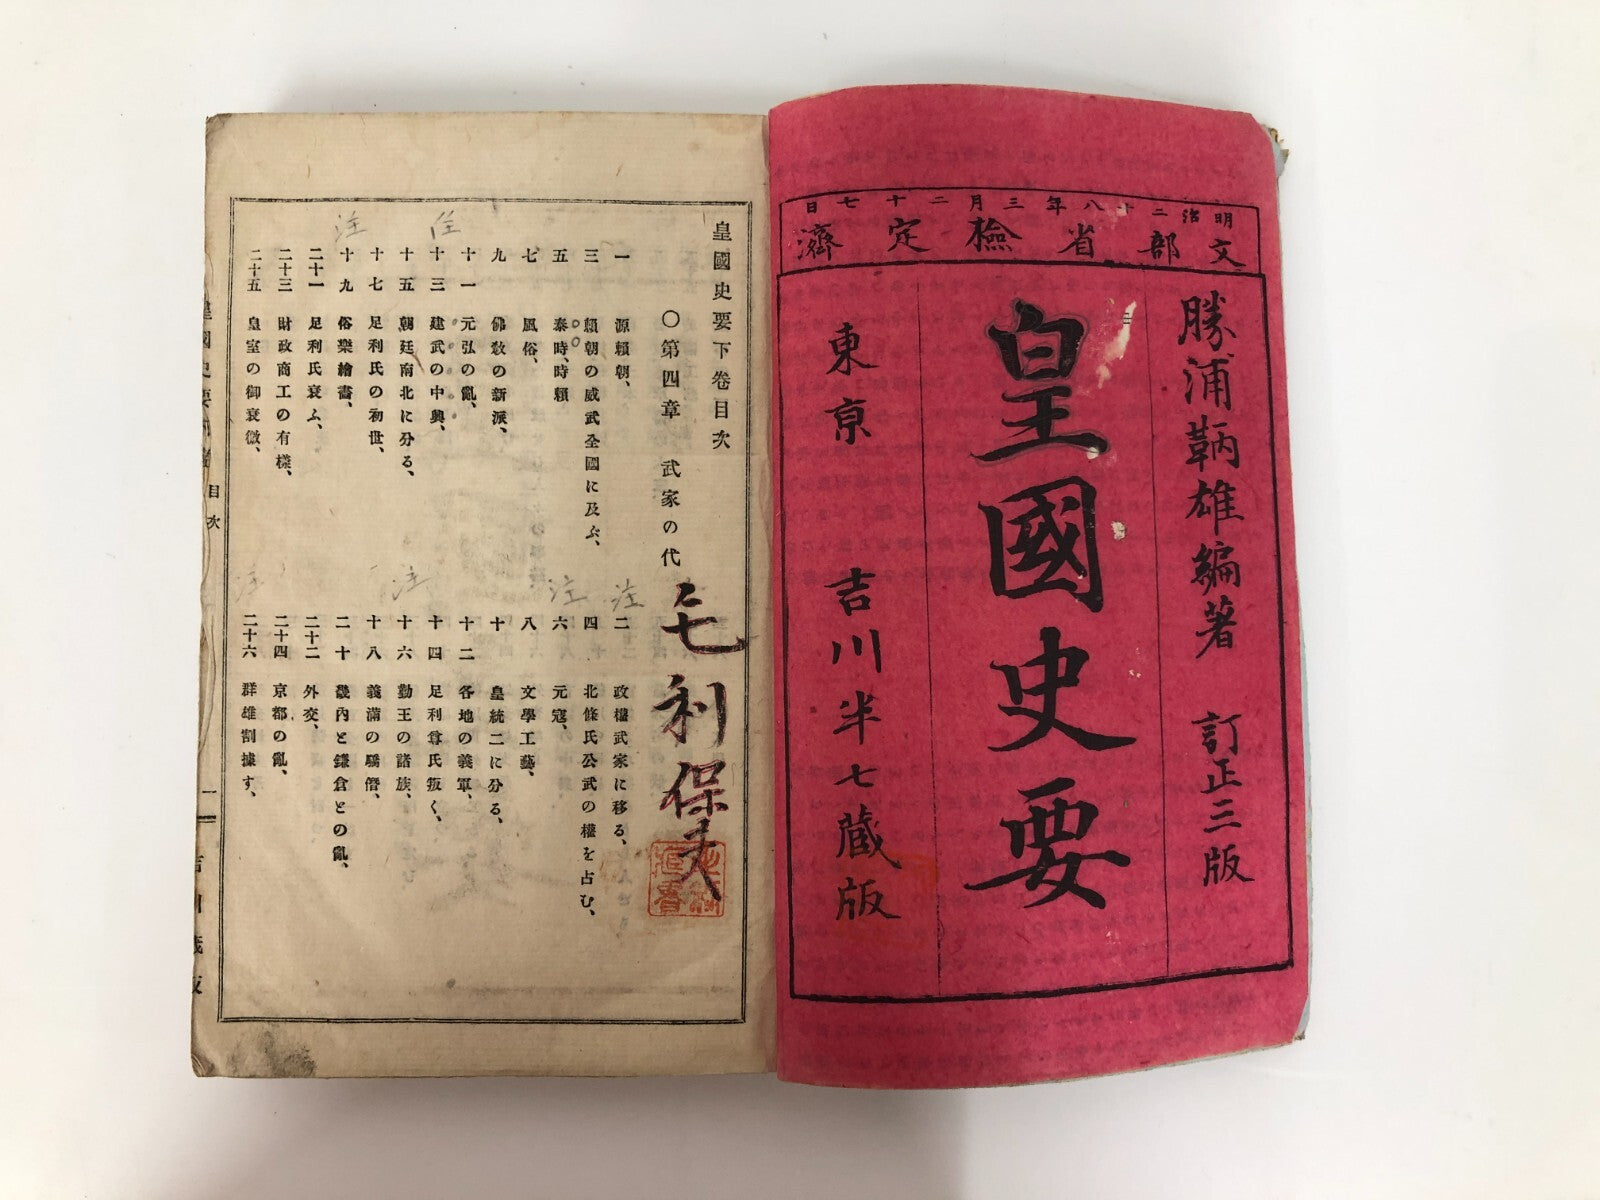 明治二十八年三月二十七日
文部省檢定濟
勝浦鞆雄編著　訂正三版
皇國史要
東京　吉川半七藏版
皇國史要下卷目次
〇第四章　武家の代
一　源賴朝、
二　政權武家に移る、
三　賴朝の威武全國に及ぶ、
四　北條氏公武の權を占む、
五　泰時、時賴
六　元寇、
七　風俗、
八　文學工藝、
九　佛敎の新派、
十　皇統二に分る、
十一　元弘の亂、
十二　各地の義軍、
十三　建武の中興、
十四　足利尊氏叛く、
十五　朝廷南北に分る、
十六　勤王の諸族、
十七　足利氏の初世、
十八　義滿の驕僭、
十九　俗樂繪畵、
二十　畿內と鎌倉との亂、
二十一　足利氏衰ふ、
二十二　外交、
二十三　財政商工の有樣、
二十四　京都の亂、
二十五　皇室の御衰微、
二十六　群雄割據す、
毛利保
注
住
注
注
注
注
目次
一